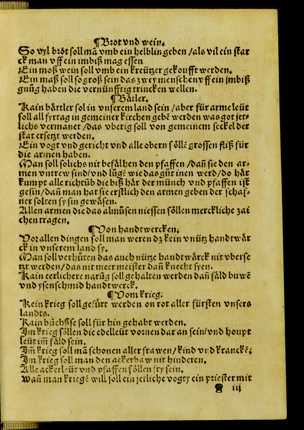 ¶Brot vnd wein.
So vyl brot soll mā vmb ein helblin geben / als vil ein star
ck man vff ein imbiß mag essen
Ein moß wein soll vmb ein kreützer gekoufft werden.
Ein maß soll so groß sein das zwey menschen vff ein imbiß
gnůg haben die vernünfftig trincken wellen.
¶Båttler.
Kain båttler sol in vnserem land sein / aber für arme leüt
soll all frytag in gemeiner kirchen gebė werden was got jets
liches vermanet / das vberig soll von gemeinem seckel der
stat ersetzt werden.
Ein vogt vnd gericht vnd alle obern söllė grossen fliß für
die armen haben.
Man soll solichs nit befålhen den pfaffen / dañ sie den ar⸗
men vntrew sind / vnd lůgė wie das gůt inen werd / do hår
kumpt alle richtůb die biß hår der münch vnd pfaffen ist
gesin / dañ man hat sie erstlich den armen geben der schaf⸗
ner solten sy sin gewåsen.
Allen armen die das almůsen niessen söllen merckliche zai
chen tragen.
¶Von handtwercken.
Vor allen dingen soll man weren dz kein vnütz handtwår
ck in vnserem land sy.
Man soll verhüten das auch nütze handtwårck nit vberse
tzt werden / das nit meer meister dañ knecht syen.
Kein zertlichere narůg soll gehalten werden dañ såld buwė
vnd ysenschmid handtwerck.
¶Vom krieg.
Kein krieg soll gefürt werden on rot aller fürsten vnsers
lands.
Kain büchsse soll für hin gehabt werden.
Im krieg söllen die edelleüt vornen dar an sein / vnd houpt
leüt im såld sein.
Im krieg soll mā schonen aller frawen / kind vnd kranckė.
Im krieg soll man den ackerbaw nit hinderen.
Alle ackerlüt vnd pfaffen söllen fry sein.
Wañ man kriegė will soll ein jetliche vogty ein priester mit
iij